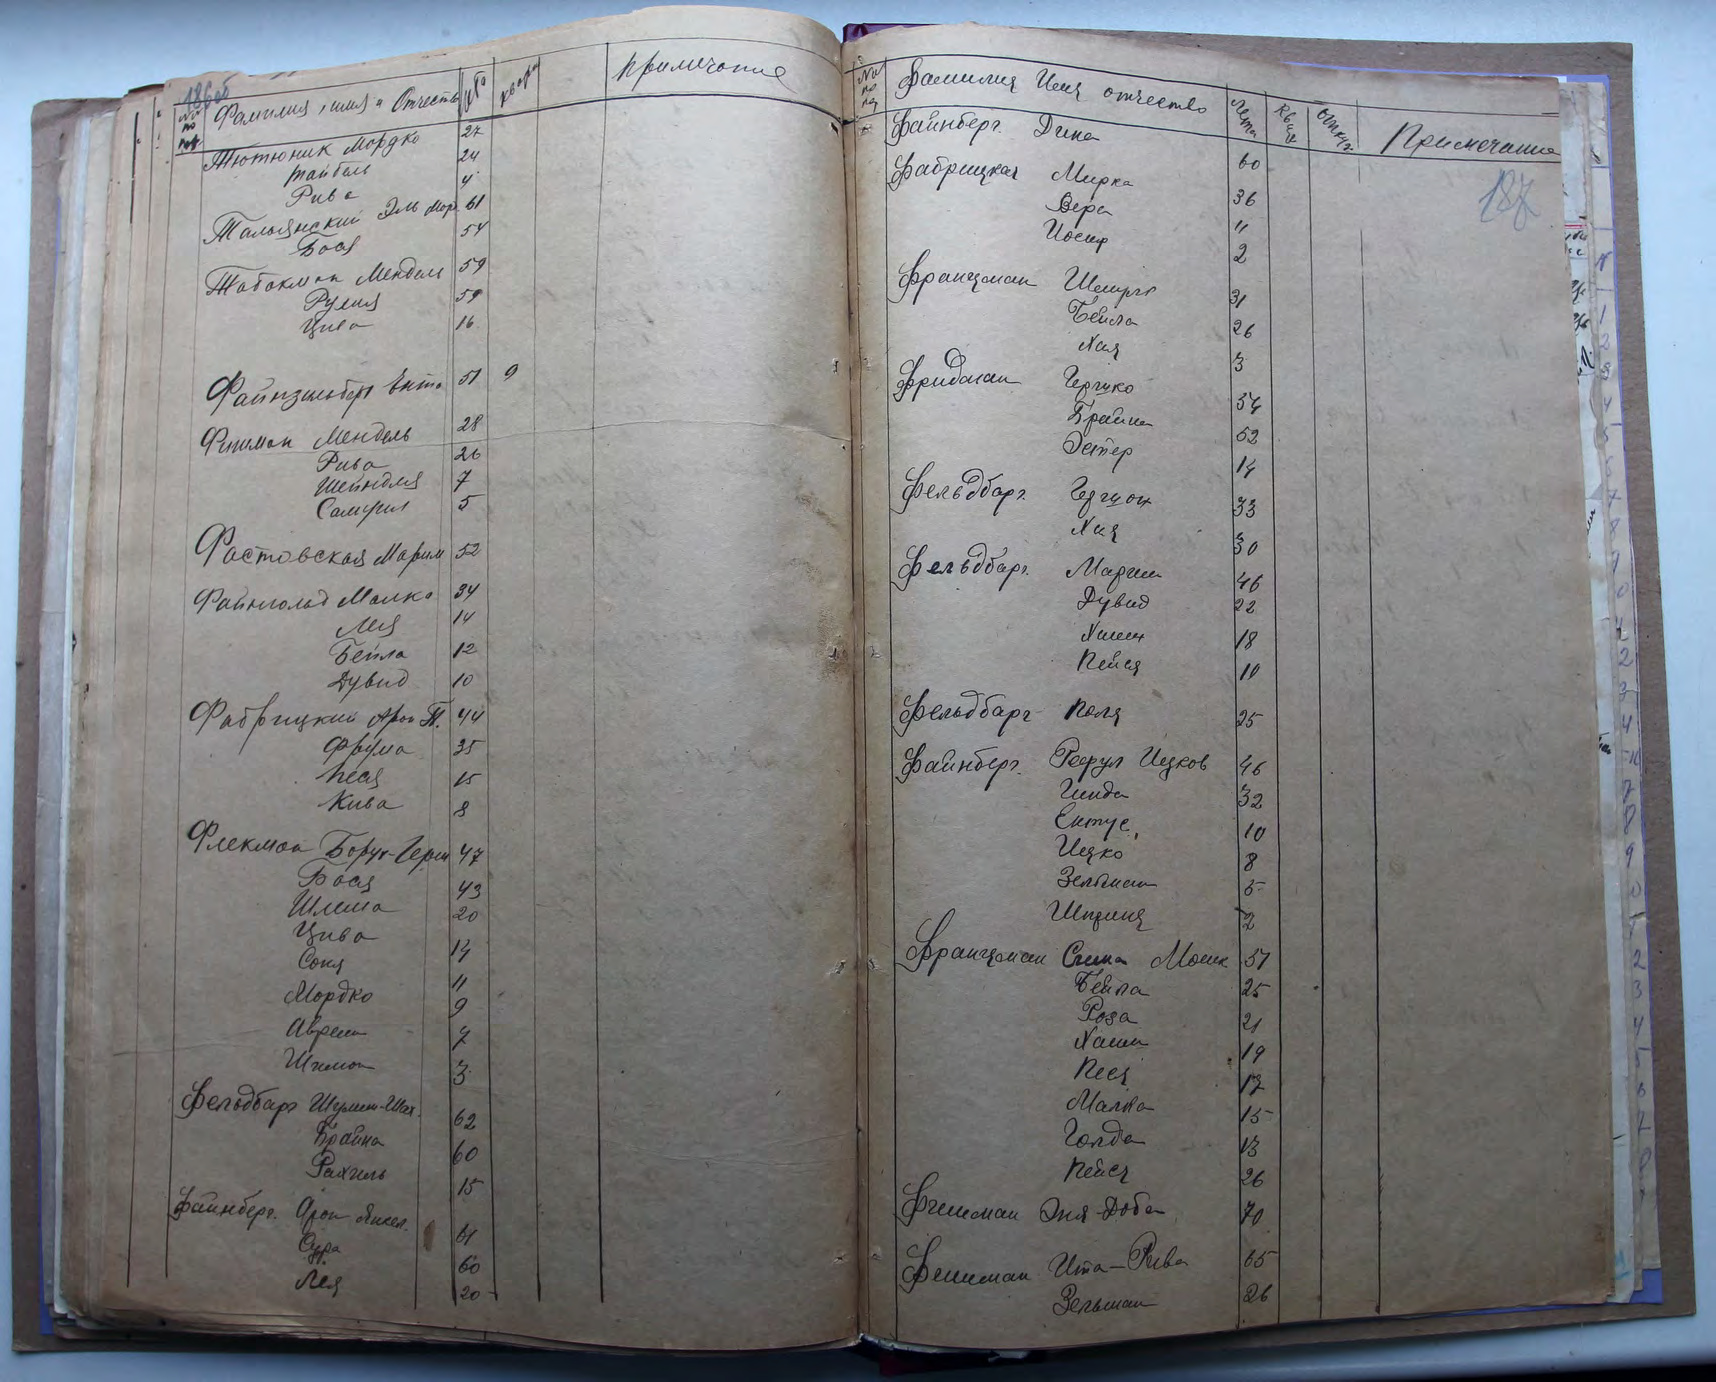 186об
№ по пор. Фамилия, имя и Отчество лета кварт Примечание
Тютюник Мордко 27
Тайбель 24
Рива 4
Тальянский Эль Мор. 61
Бася 54
Табакман Мендель 59
Рухля 59
Цива 16
Файнзильберг Ента 51 9
Фишман Мендель 28
Рива 26
Шейндля 7
Самуил 5
Фастовская Марим 52
Файнгольд Малка 34
Лея 14
Бейла 12
Дувид 10
Фабрицкий Арон Т. 44
Фрума 35
Песя 15
Кива 8
Флекман Борух-Герш 47
Бася 43
Шлема 20
Цива 14
Соня 11
Мордко 9
Аврам 7
Шимон 3
Фельдбарг Шулим-Шах. 62
Брайна 60
Рахиль 15
Файнберг. Арон Янкел. 61
Сура 60
Лея 20
№ по пор Фамилия Имя отчество Лета Квит Примечание
187
Файнберг. Дина 60
Фабрицкая Мирка 36
Вера 11
Иосиф 2
Францман Шмирл 31
Бейла 26
Хая 3
Фридман Гершко 54
Брайна 52
Эстер 14
Фельдбарг. Гершон 33
Хая 30
Фельдбарг. Мариям 46
Дувид 22
Хаим 18
Пейся 10
Фельдбарг Поля 25
Файнберг. Рафул Ицков 46
Гинда 32
Ентус 10
Ицко 8
Зельман 5
Шпринця 2
Францман Сима Мошк 51
Бейла 25
Роза 21
Хаим 19
Песя 17
Малка 15
Голда 13
Пейся 26
Фишман Эня-Доба 70
Фишман Ита-Рива 65
Зельман 26